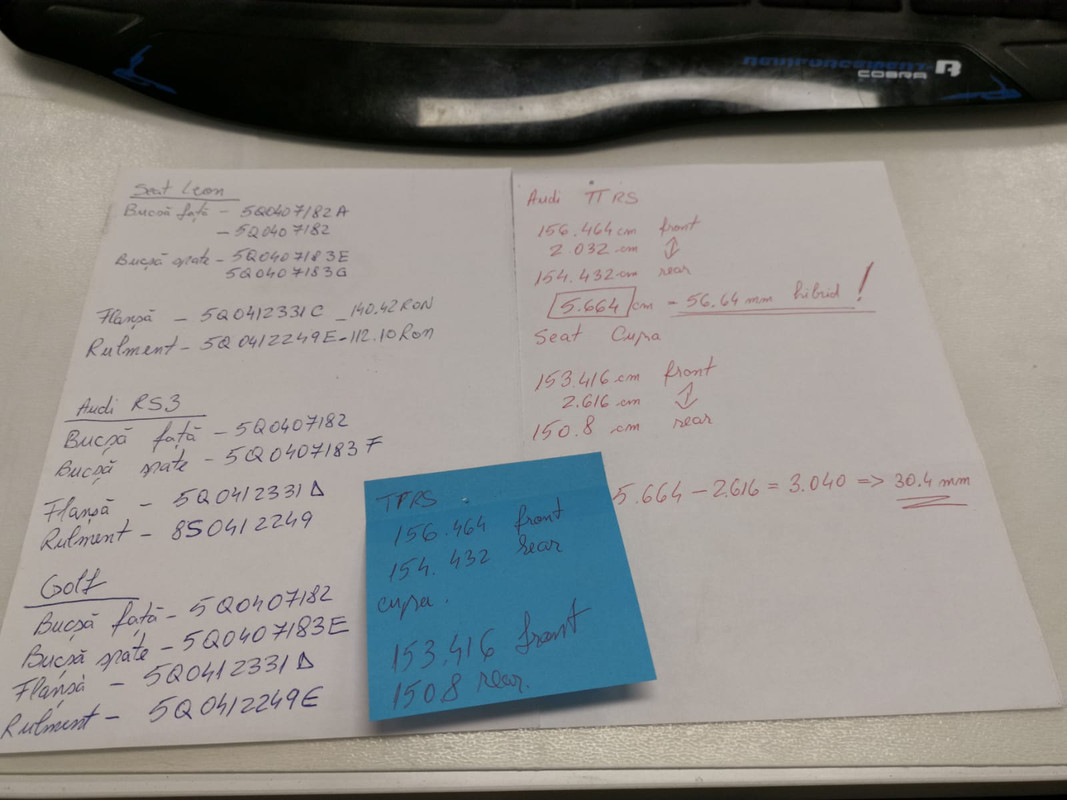 REINFORCEMENT-R
COBRA
Seat Leon
Bucșă față - 5Q0407182A
- 5Q0407182
Bucșă spate - 5Q0407183E
5Q0407183G
Flanșă - 5Q0412331C - 140.42 RON
Rulment - 5Q0412249E - 112.10 Ron
Audi RS3
Bucșă față - 5Q0407182
Bucșă spate - 5Q0407183F
Flanșă - 5Q0412331D
Rulment - 8S0412249
Golf
Bucșă față - 5Q0407182
Bucșă spate - 5Q0407183E
Flanșă - 5Q0412331D
Rulment - 5Q0412249E
Audi TTRS
156.464 cm front
2.032 cm ↕
154.432 cm rear
5.664 cm = 56.64 mm hibrid!
Seat Cupra
153.416 cm front
2.616 cm ↕
150.8 cm rear
5.664 - 2.616 = 3.040 => 30.4 mm
TTRS
156.464 front
154.432 rear
cupra.
153.416 front
150.8 rear.